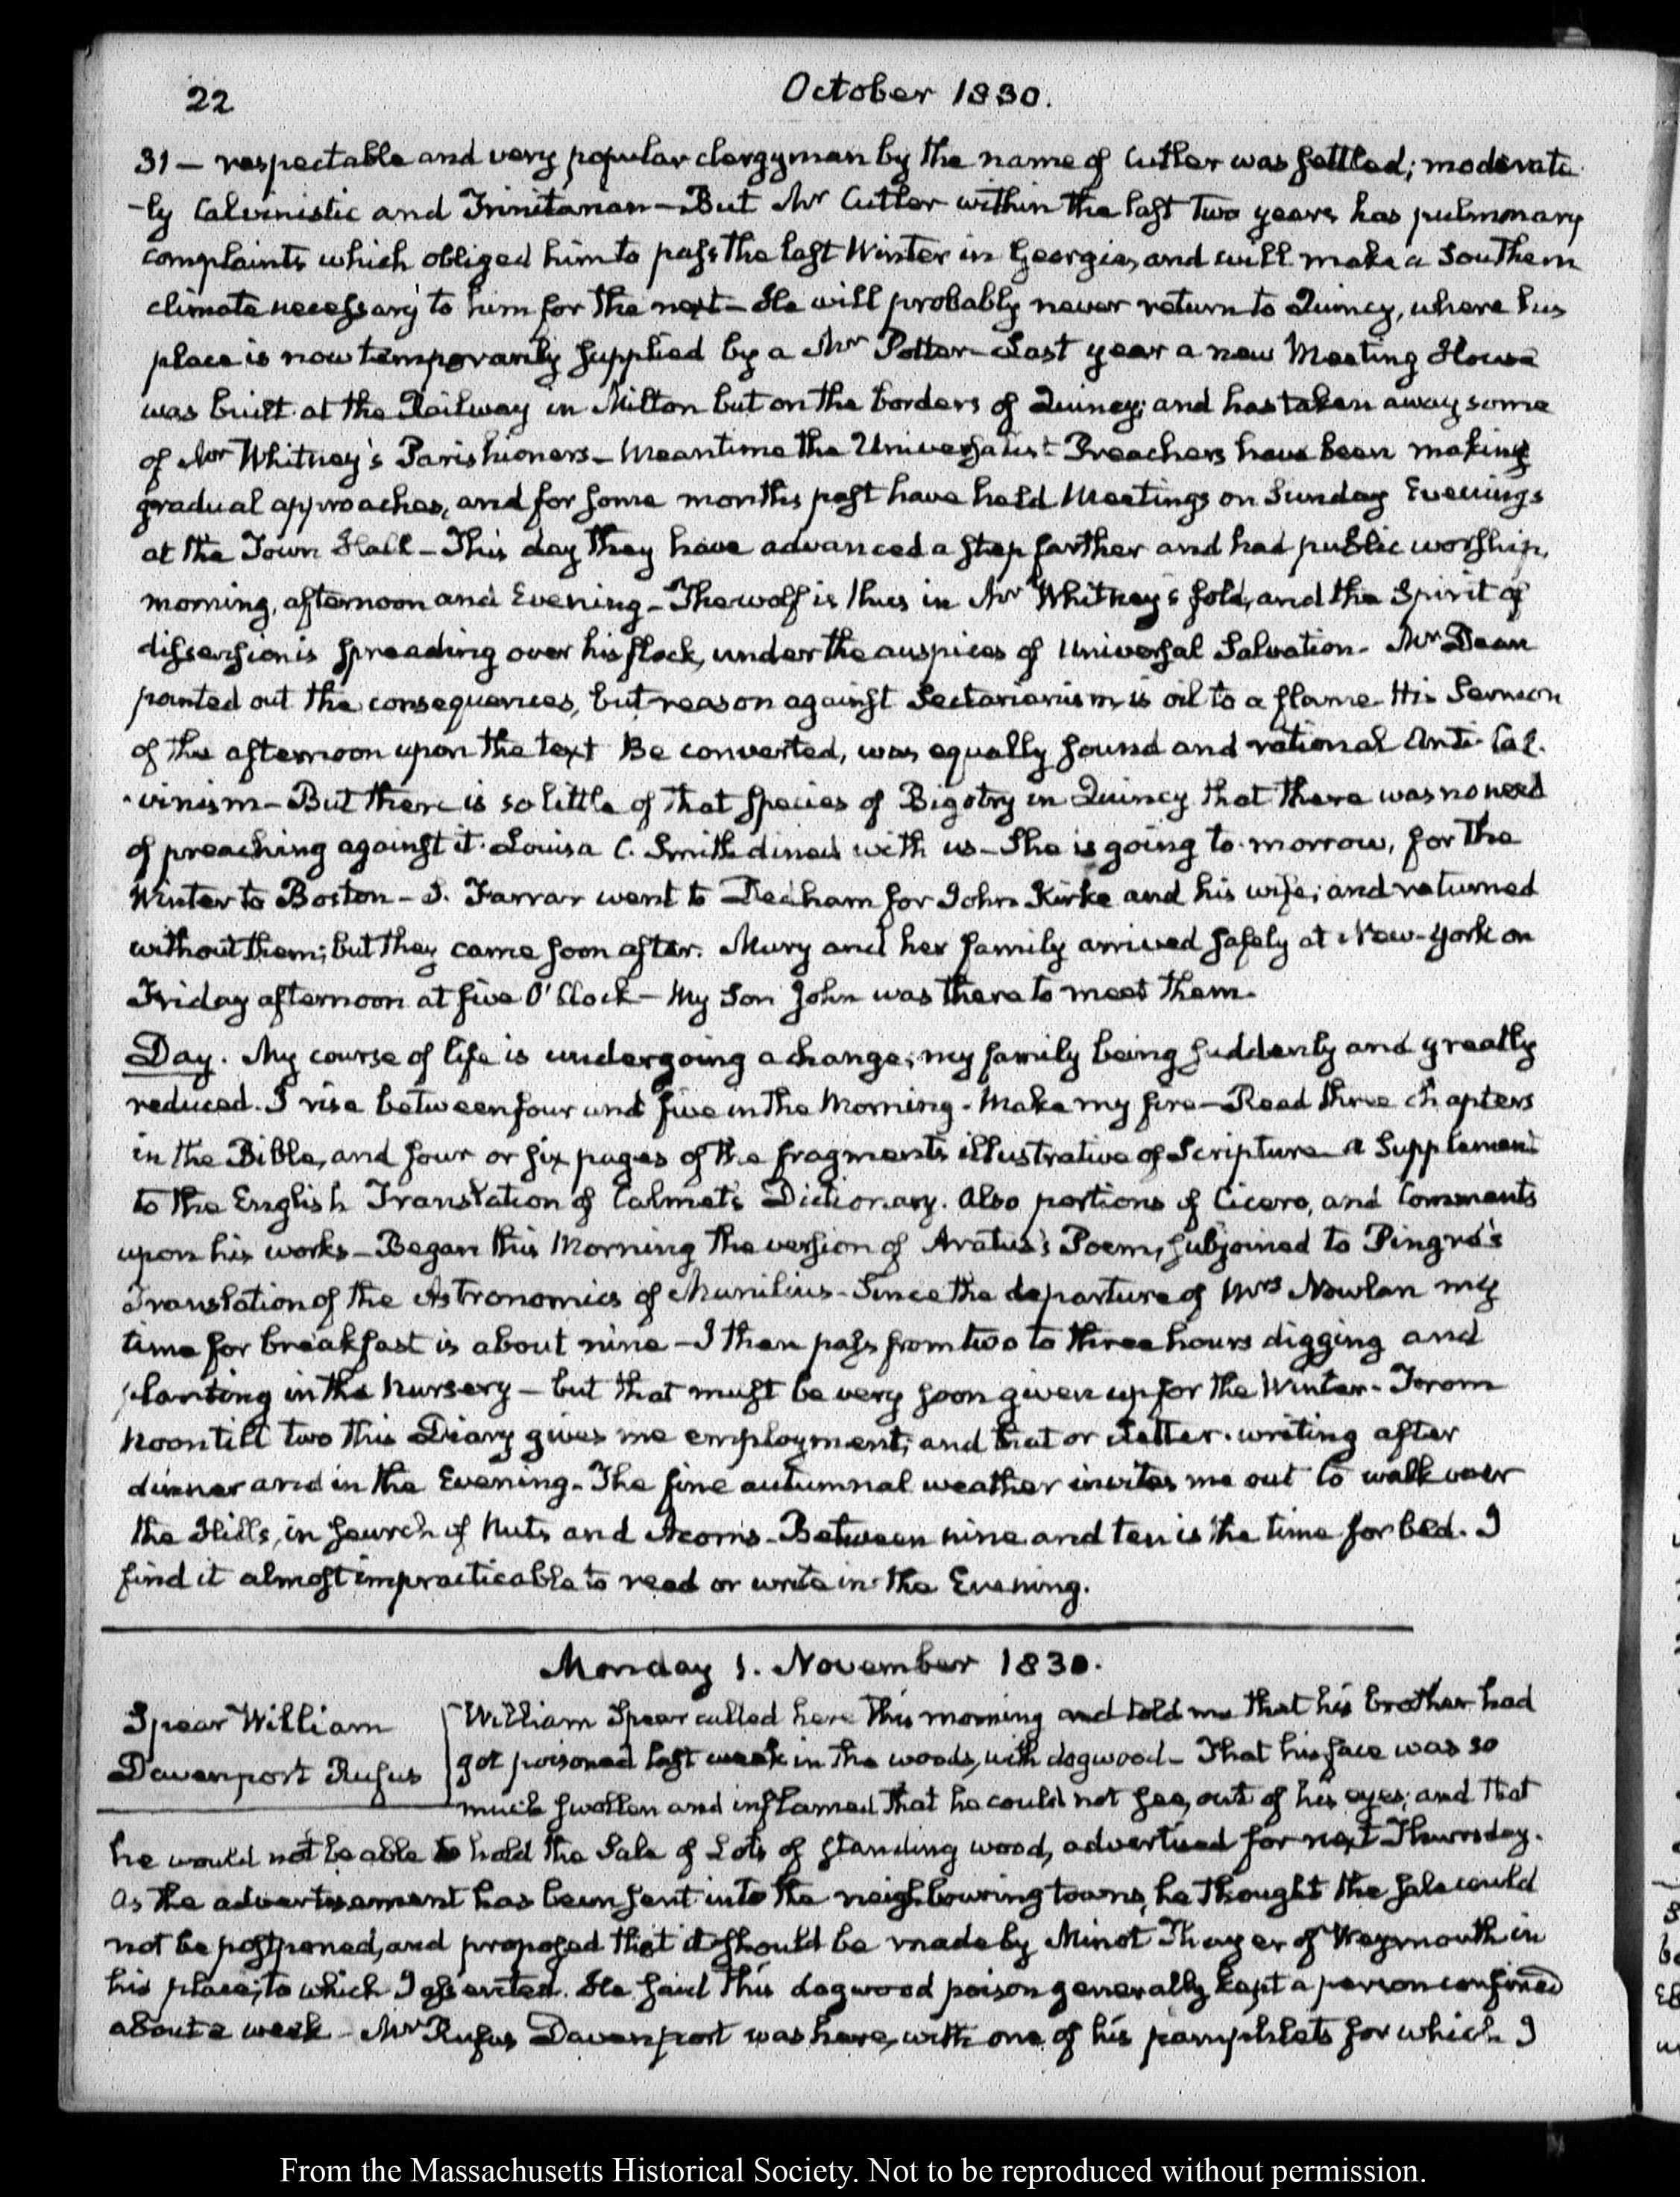 22
October 1830.
31 — respectable and very popular clergyman by the name of Cutler was settled; moderate
-ly Calvinistic and Trinitarian — But Mr Cutler within the last two years has pulmonary
complaints which obliged him to pass the last Winter in Georgia, and will make a Southern
climate necessary to him for the next — He will probably never return to Quincy, where his
place is now temporarily supplied by a Mr Potter — Last year a new Meeting House
was built at the Railway in Milton but on the borders of Quincy; and has taken away some
of Mr Whitney's Parishioners — Meantime the Universalist Preachers have been making
gradual approaches, and for some months past have held Meetings on Sunday Evenings
at the Town Hall — This day they have advanced a step farther and had public worship,
morning, afternoon and Evening — The wolf is thus in Mr Whitney's fold, and the Spirit of
dissension is spreading over his flock, under the auspices of Universal Salvation. Mr Dean
pointed out the consequences, but reason against Sectarianism is oil to a flame. His Sermon
of the afternoon upon the text Be converted, was equally sound and rational Anti-Cal-
-vinism — But there is so little of that species of Bigotry in Quincy that there was no need
of preaching against it. Louisa C. Smith dined with us — She is going to-morrow, for the
Winter to Boston — J. Farrar went to Dedham for John Kirke and his wife; and returned
without them; but they came soon after. Mary and her family arrived safely at New-York on
Friday afternoon at five O'Clock — My Son John was there to meet them.
Day. My course of life is undergoing a change; my family being suddenly and greatly
reduced. I rise between four and five in the Morning — Make my fire — Read three chapters
in the Bible, and four or six pages of the fragments illustrative of Scripture — A Supplement
to the English Translation of Calmet's Dictionary. Also portions of Cicero, and Comments
upon his works — Began this Morning the version of Aratus's Poem, subjoined to Pingré's
Translation of the Astronomics of Manilius — Since the departure of Mrs Nowlan my
time for breakfast is about nine — I then pass from two to three hours digging and
planting in the Nursery — but that must be very soon given up for the Winter — From
Noon till two this Diary gives me employment; and that or Letter-writing after
dinner and in the Evening — The fine autumnal weather invites me out to walk over
the Hills, in search of Nuts and Acorns — Between nine and ten is the time for bed. I
find it almost impracticable to read or write in the Evening.
Monday 1. November 1830.
Spear William
Davenport Rufus
William Spear called here this morning and told me that his brother had
got poisoned last week in the woods, with dogwood — That his face was so
much swollen and inflamed that he could not see, out of his eyes; and that
he would not be able to hold the Sale of Lots of standing wood, advertised for next Thursday.
As the advertisement has been sent into the neighbouring towns, he thought the sale could
not be postponed, and proposed that it should be made by Minot Thayer of Weymouth in
his place; to which I assented. He said this dogwood poison generally kept a person confined
about a week — Mr Rufus Davenport was here, with one of his pamphlets for which I
From the Massachusetts Historical Society. Not to be reproduced without permission.